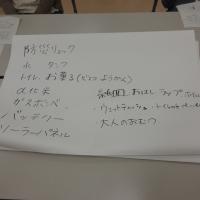 防災リュック
水 タンク
トイレ お菓子(ビスコ ようかん)
α化米
ガスボンベ
バッテリー
ソーラーパネル
おはし ラップ
・ウェットティッシュ ・トイレットペーパー
・大人のおむつ